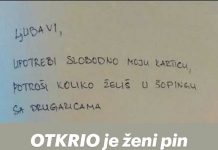 LJUBAVI,
UPOTREBI SLOBODNO MOJU KARTICU,
POTROŠI KOLIKO ŽELIŠ U ŠOPINGU
SA DRUGARICAMA
OTKRIO je ženi pin